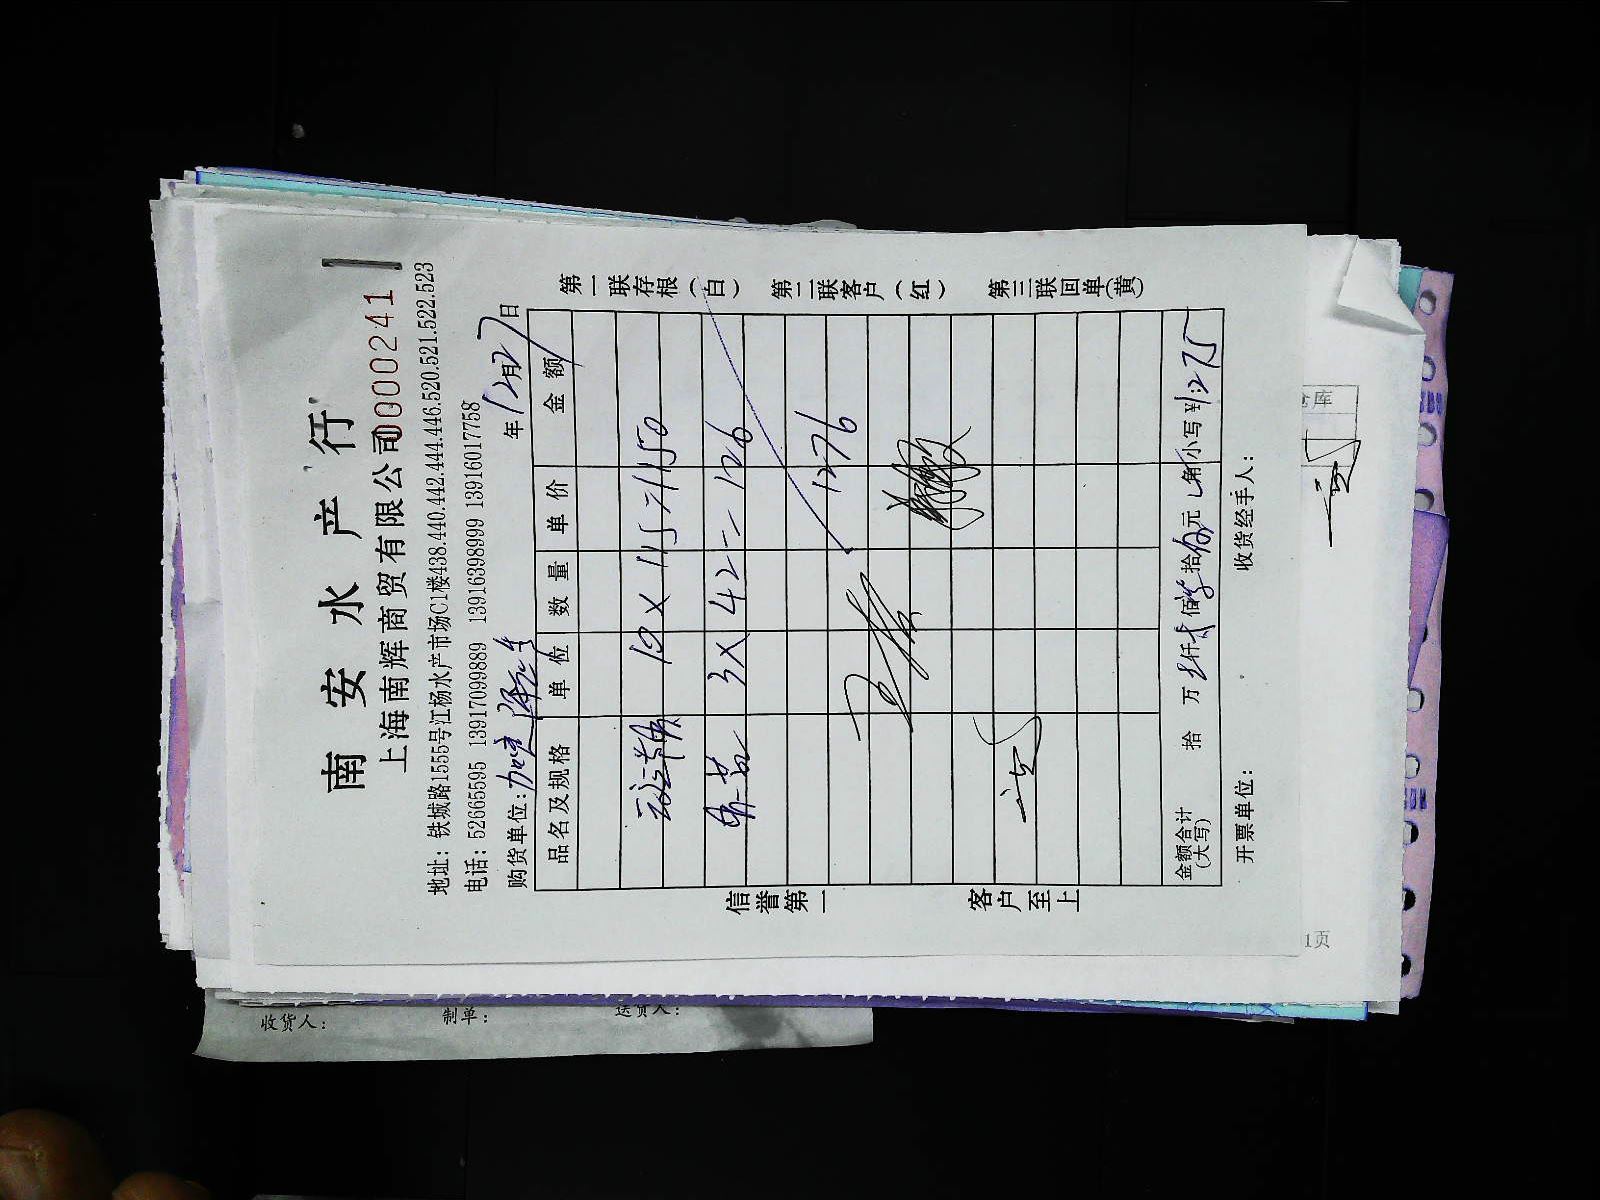 南安水产行
上海南辉商贸有限公司 0000241
地址：铁城路1555号江杨水产市场C1楼438.440.442.444.446.520.521.522.523
电话：52665595 13917099889 13916398999 13916017758
购货单位： 年12月27日
品名及规格 单位 数量 单价 金额
10 X 115=1150
3X 42=126
1276
金额合计(大写) 拾 万 仟 佰 拾 元 角 小写¥:1275
开票单位： 收货经手人：
第一联存根（白） 第二联客户（红） 第三联回单（黄）
信誉第一 客户至上
仓库
1页
收货人： 制单： 送货人：